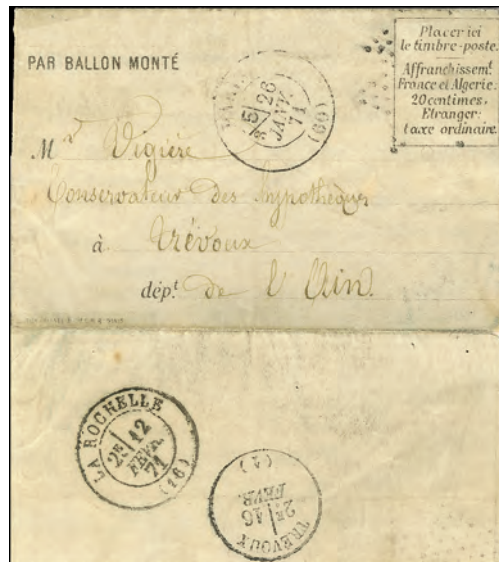 PAR BALLON MONTÉ
Placer ici
le timbre-poste.
Affranchissemt
France et Algérie:
20 centimes,
Etranger:
taxe ordinaire.
PARIS
5E
26
JANV.
71
(60)
Mr Vigière
Conservateur des hypothèques
à Trévoux
dépt de l'Ain.
LA ROCHELLE
2E
12
FEVR.
71
(16)
TREVOUX
2E
16
FEVR.
(1)